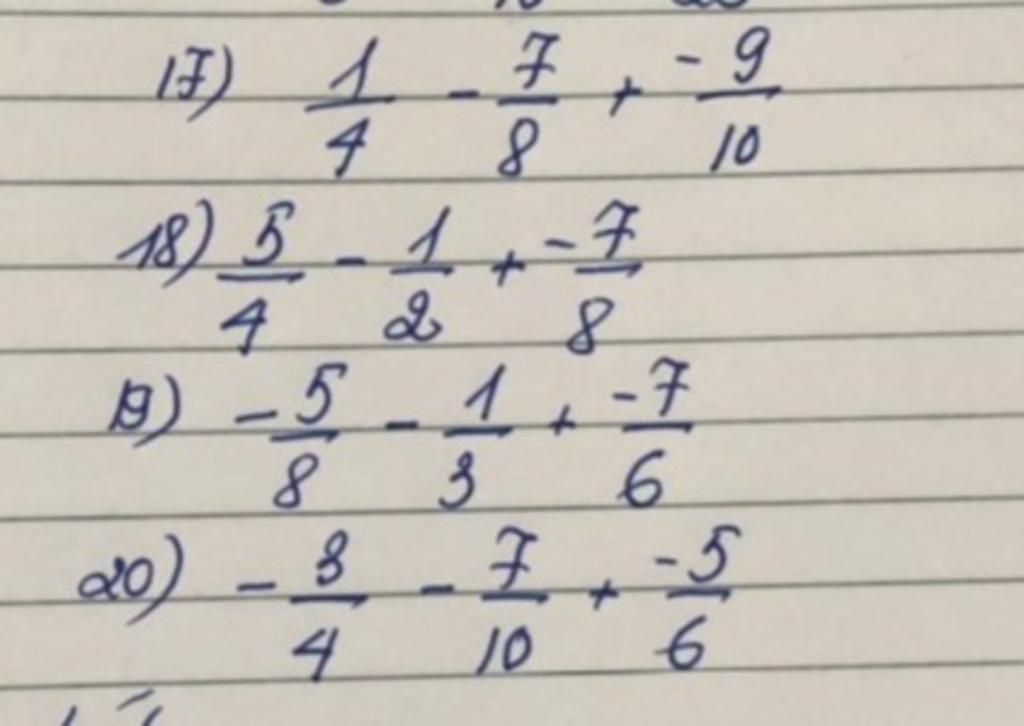 17) 1/4 - 7/8 + -9/10
18) 5/4 - 1/2 + -7/8
19) -5/8 - 1/3 + -7/6
20) -3/4 - 7/10 + -5/6